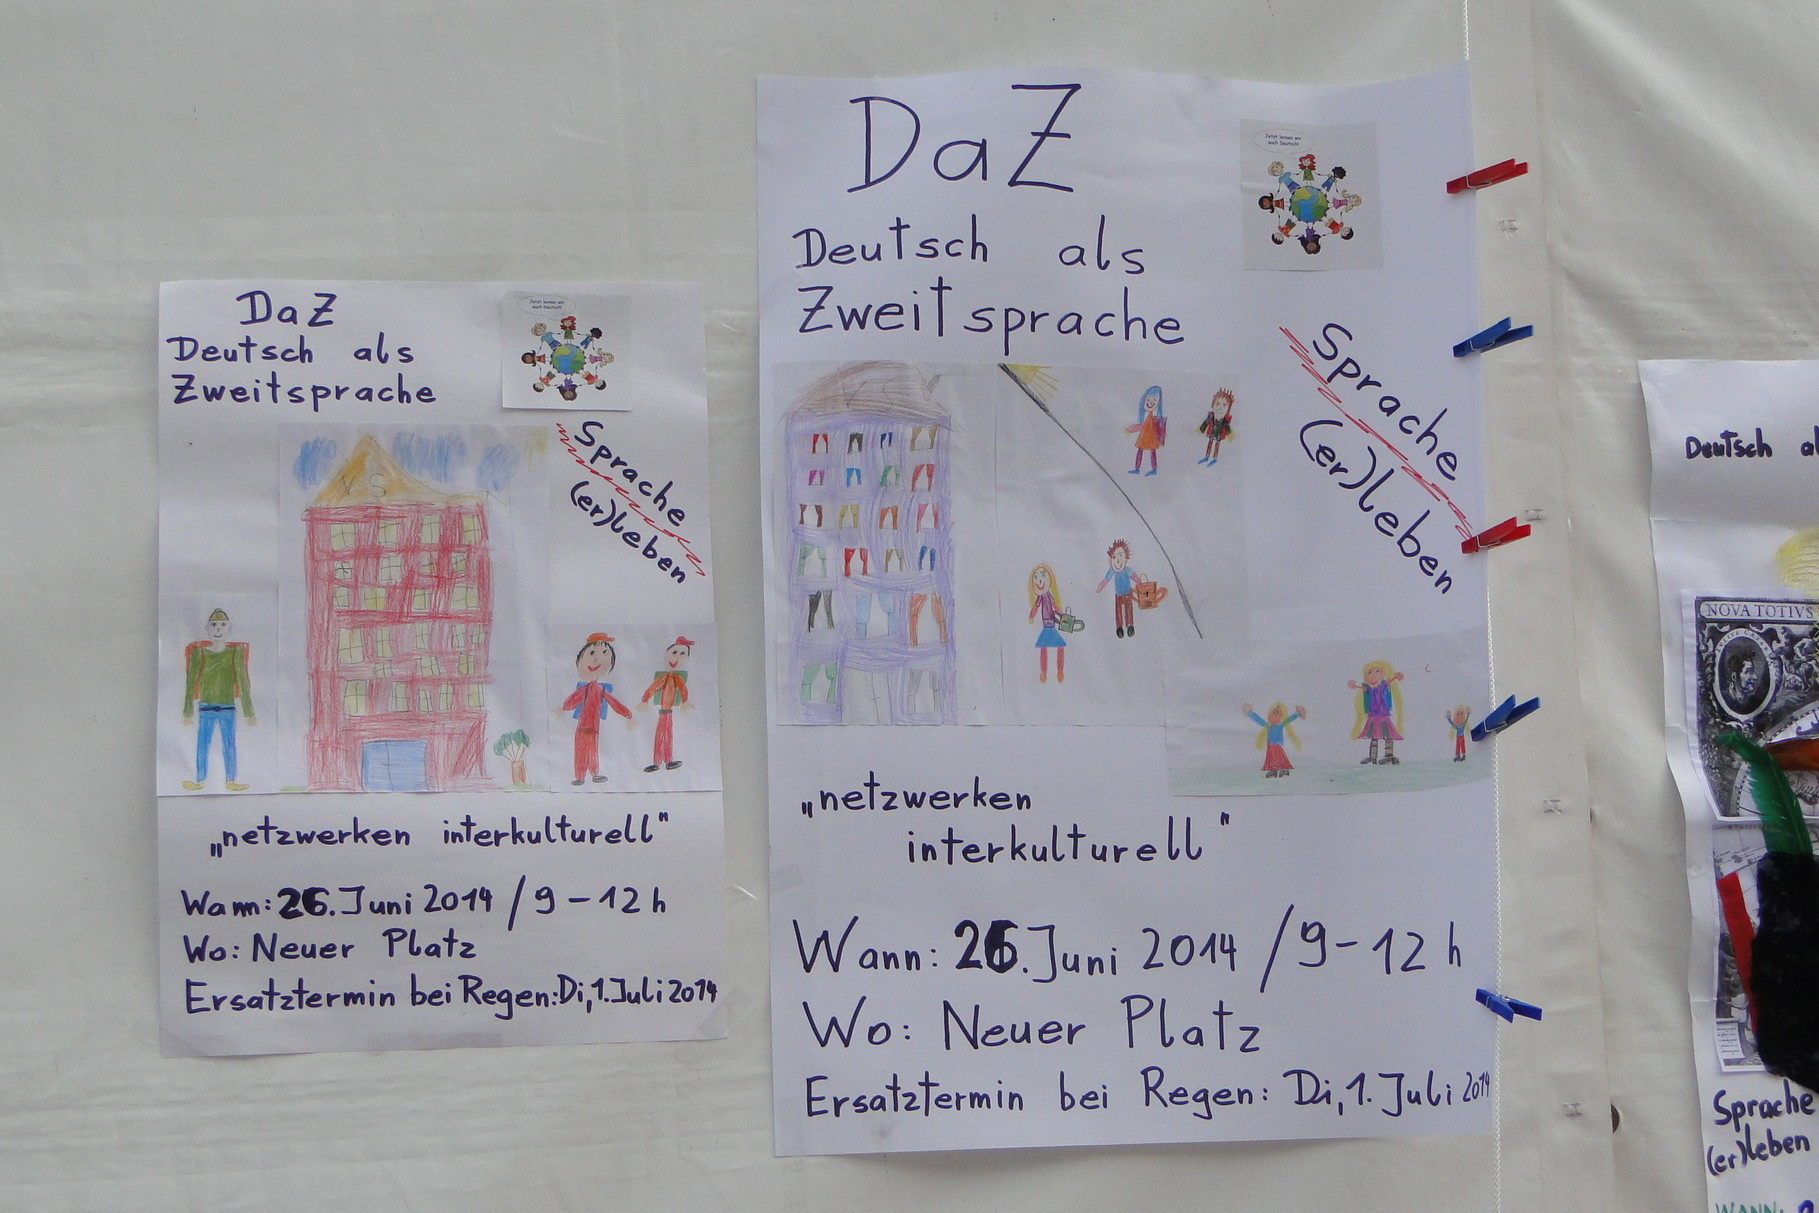 DaZ
Deutsch als
Zweitsprache
Jetzt lernen wir
auch Deutsch!
Sprache
(er)leben
VS
„netzwerken interkulturell"
Wann: 26. Juni 2014 / 9 - 12 h
Wo: Neuer Platz
Ersatztermin bei Regen: Di, 1. Juli 2014
DaZ
Deutsch als
Zweitsprache
Jetzt lernen wir
auch Deutsch!
Sprache
(er)leben
„netzwerken
interkulturell"
Wann: 26. Juni 2014 / 9 - 12 h
Wo: Neuer Platz
Ersatztermin bei Regen: Di, 1. Juli 2014
Deutsch
NOVA TOTIVS
Sprache
(er)leben
WANN: